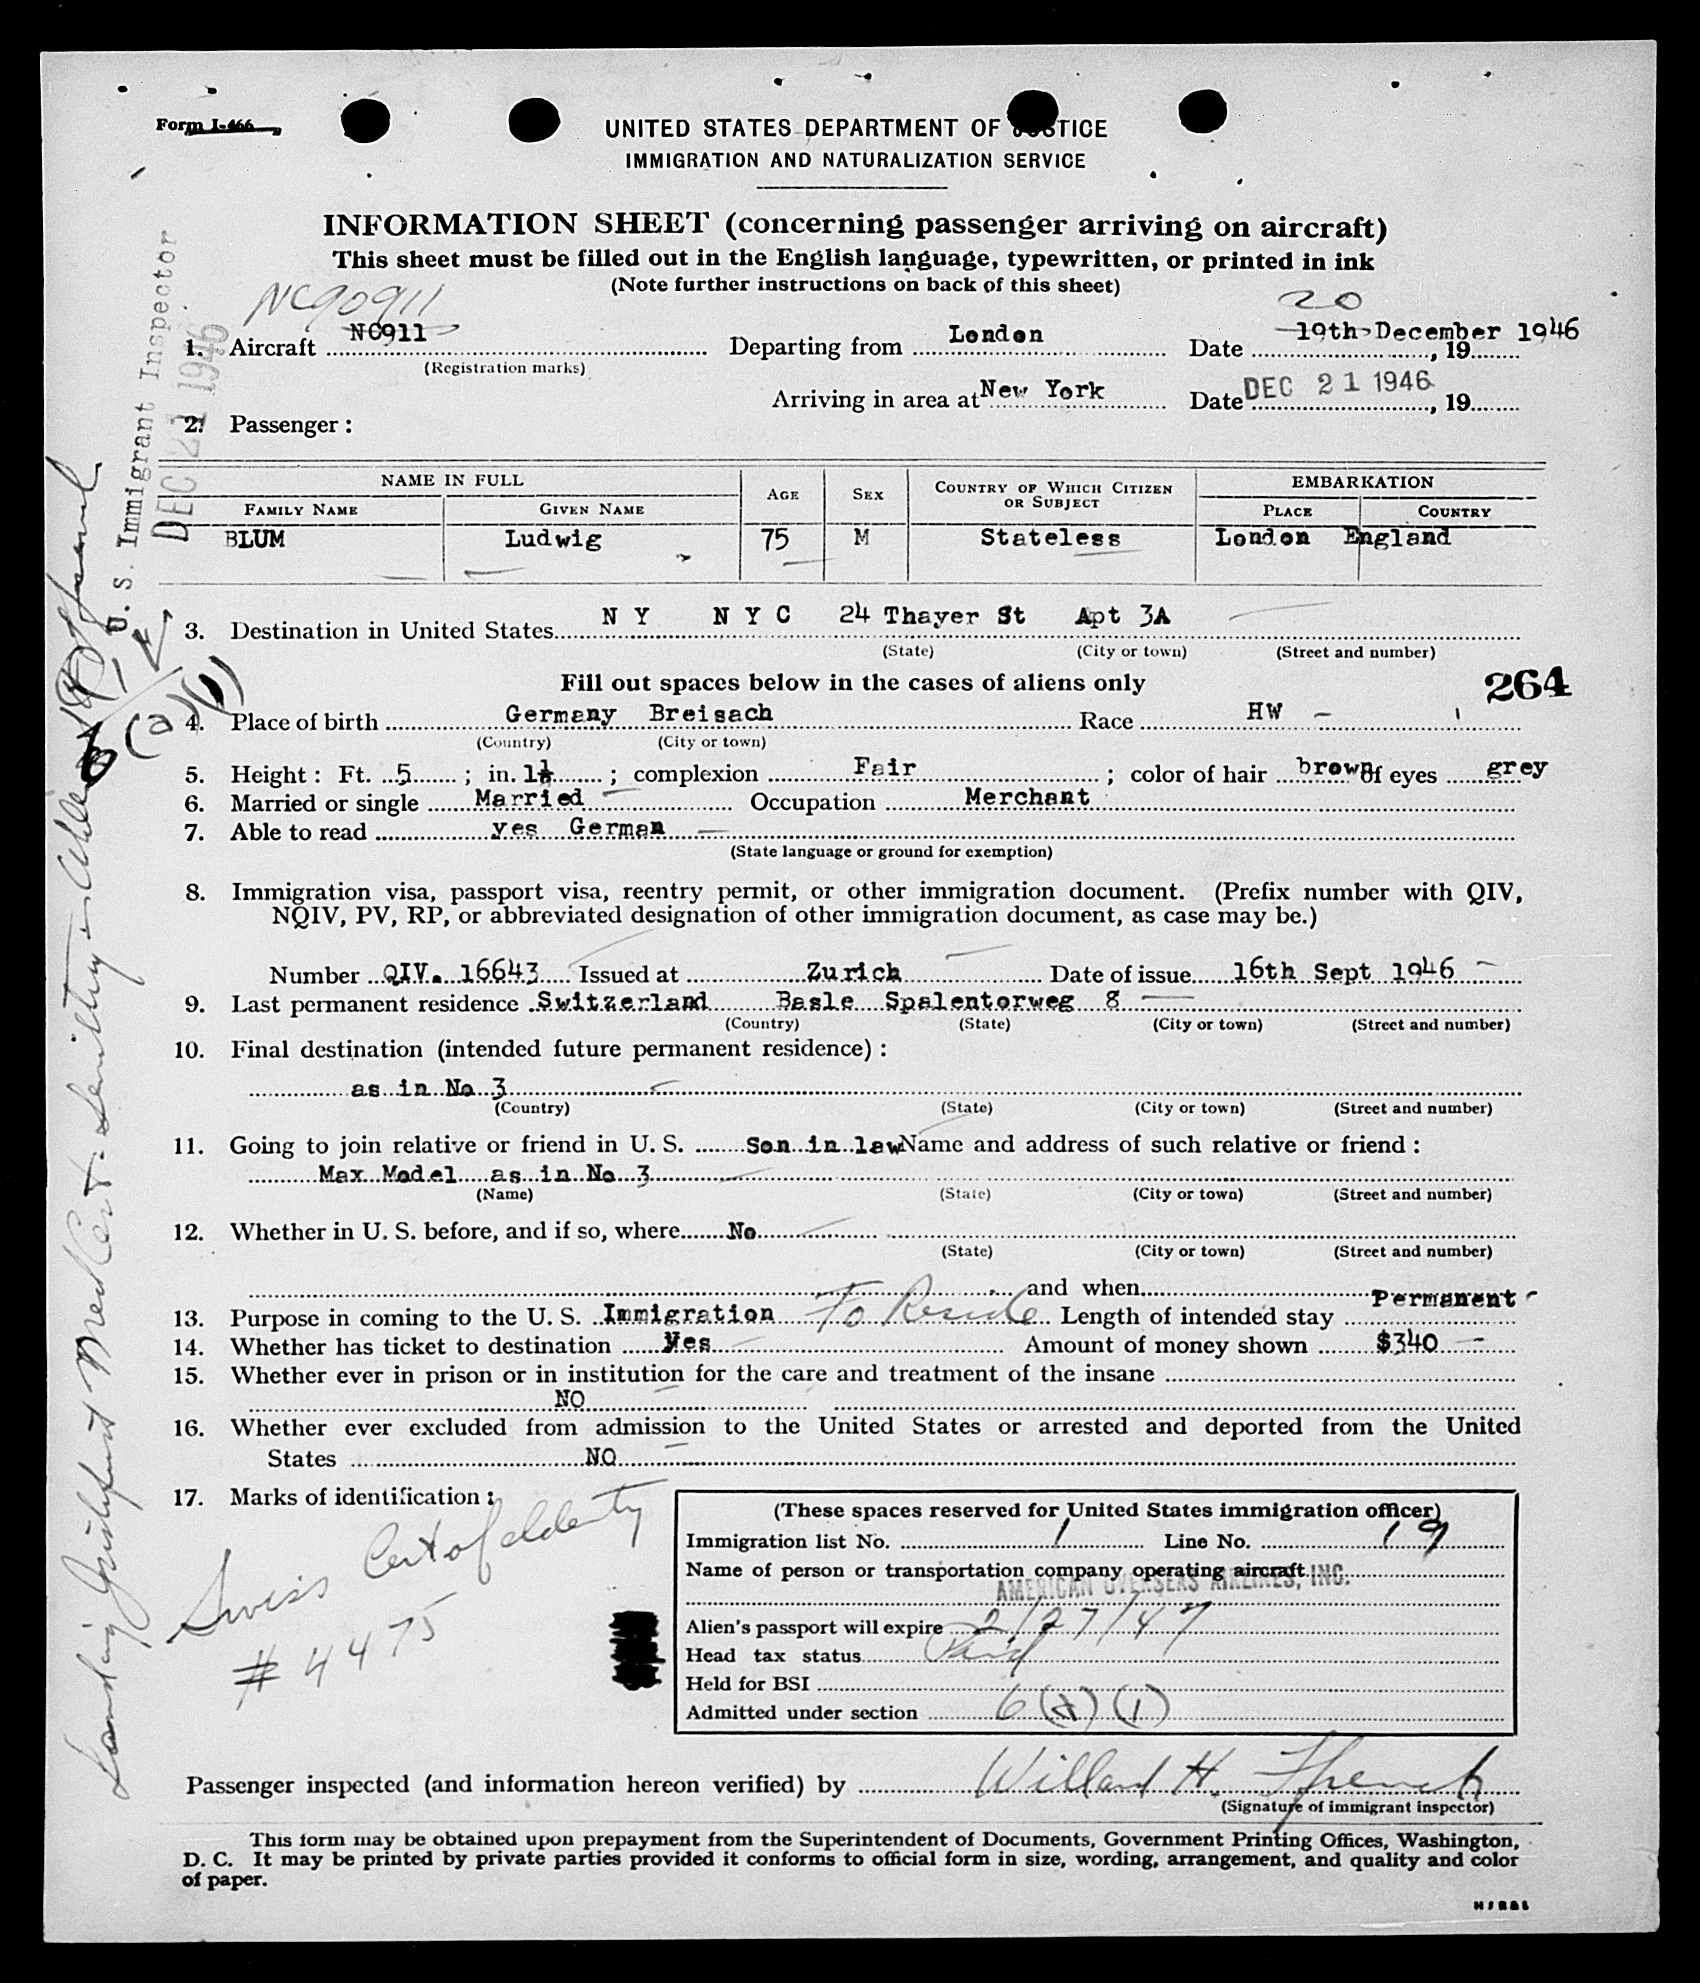 Form I-466
UNITED STATES DEPARTMENT OF JUSTICE
IMMIGRATION AND NATURALIZATION SERVICE
INFORMATION SHEET (concerning passenger arriving on aircraft)
This sheet must be filled out in the English language, typewritten, or printed in ink
(Note further instructions on back of this sheet)
NC90911
20
1. Aircraft NC911 Departing from London Date 19th December 1946, 19
(Registration marks)
Arriving in area at New York Date DEC 21 1946, 19
2. Passenger:
U. S. Immigrant Inspector
DEC 21 1946
NAME IN FULL AGE SEX COUNTRY OF WHICH CITIZEN OR SUBJECT EMBARKATION
FAMILY NAME GIVEN NAME PLACE COUNTRY
BLUM Ludwig 75 M Stateless London England
3. Destination in United States N Y N Y C 24 Thayer St Apt 3A
(State) (City or town) (Street and number)
Fill out spaces below in the cases of aliens only
264
4. Place of birth Germany Breisach Race HW
(Country) (City or town)
5. Height: Ft. 5; in. 1½; complexion Fair; color of hair brown of eyes grey
6. Married or single Married Occupation Merchant
7. Able to read yes German
(State language or ground for exemption)
8. Immigration visa, passport visa, reentry permit, or other immigration document. (Prefix number with QIV,
NQIV, PV, RP, or abbreviated designation of other immigration document, as case may be.)
Number QIV. 16643 Issued at Zurich Date of issue 16th Sept 1946
9. Last permanent residence Switzerland Basle Spalentorweg 8
(Country) (State) (City or town) (Street and number)
10. Final destination (intended future permanent residence):
as in No 3
(Country) (State) (City or town) (Street and number)
11. Going to join relative or friend in U. S. Son in law Name and address of such relative or friend:
Max Model as in No 3
(Name) (State) (City or town) (Street and number)
12. Whether in U. S. before, and if so, where No
(State) (City or town) (Street and number)
and when
13. Purpose in coming to the U. S. Immigration To Reside Length of intended stay Permanent
14. Whether has ticket to destination Yes Amount of money shown $340
15. Whether ever in prison or in institution for the care and treatment of the insane
NO
16. Whether ever excluded from admission to the United States or arrested and deported from the United
States NO
17. Marks of identification:
Swiss Cert of Identity
# 4475
(These spaces reserved for United States immigration officer)
Immigration list No. 1 Line No. 19
Name of person or transportation company operating aircraft
AMERICAN OVERSEAS AIRLINES, INC.
Alien's passport will expire 2/27/47
Head tax status Paid
Held for BSI
Admitted under section 6(a)(1)
Passenger inspected (and information hereon verified) by Willard H. French
(Signature of immigrant inspector)
This form may be obtained upon prepayment from the Superintendent of Documents, Government Printing Offices, Washington,
D. C. It may be printed by private parties provided it conforms to official form in size, wording, arrangement, and quality and color
of paper.
6(a)(1)
Med Cert. Senility